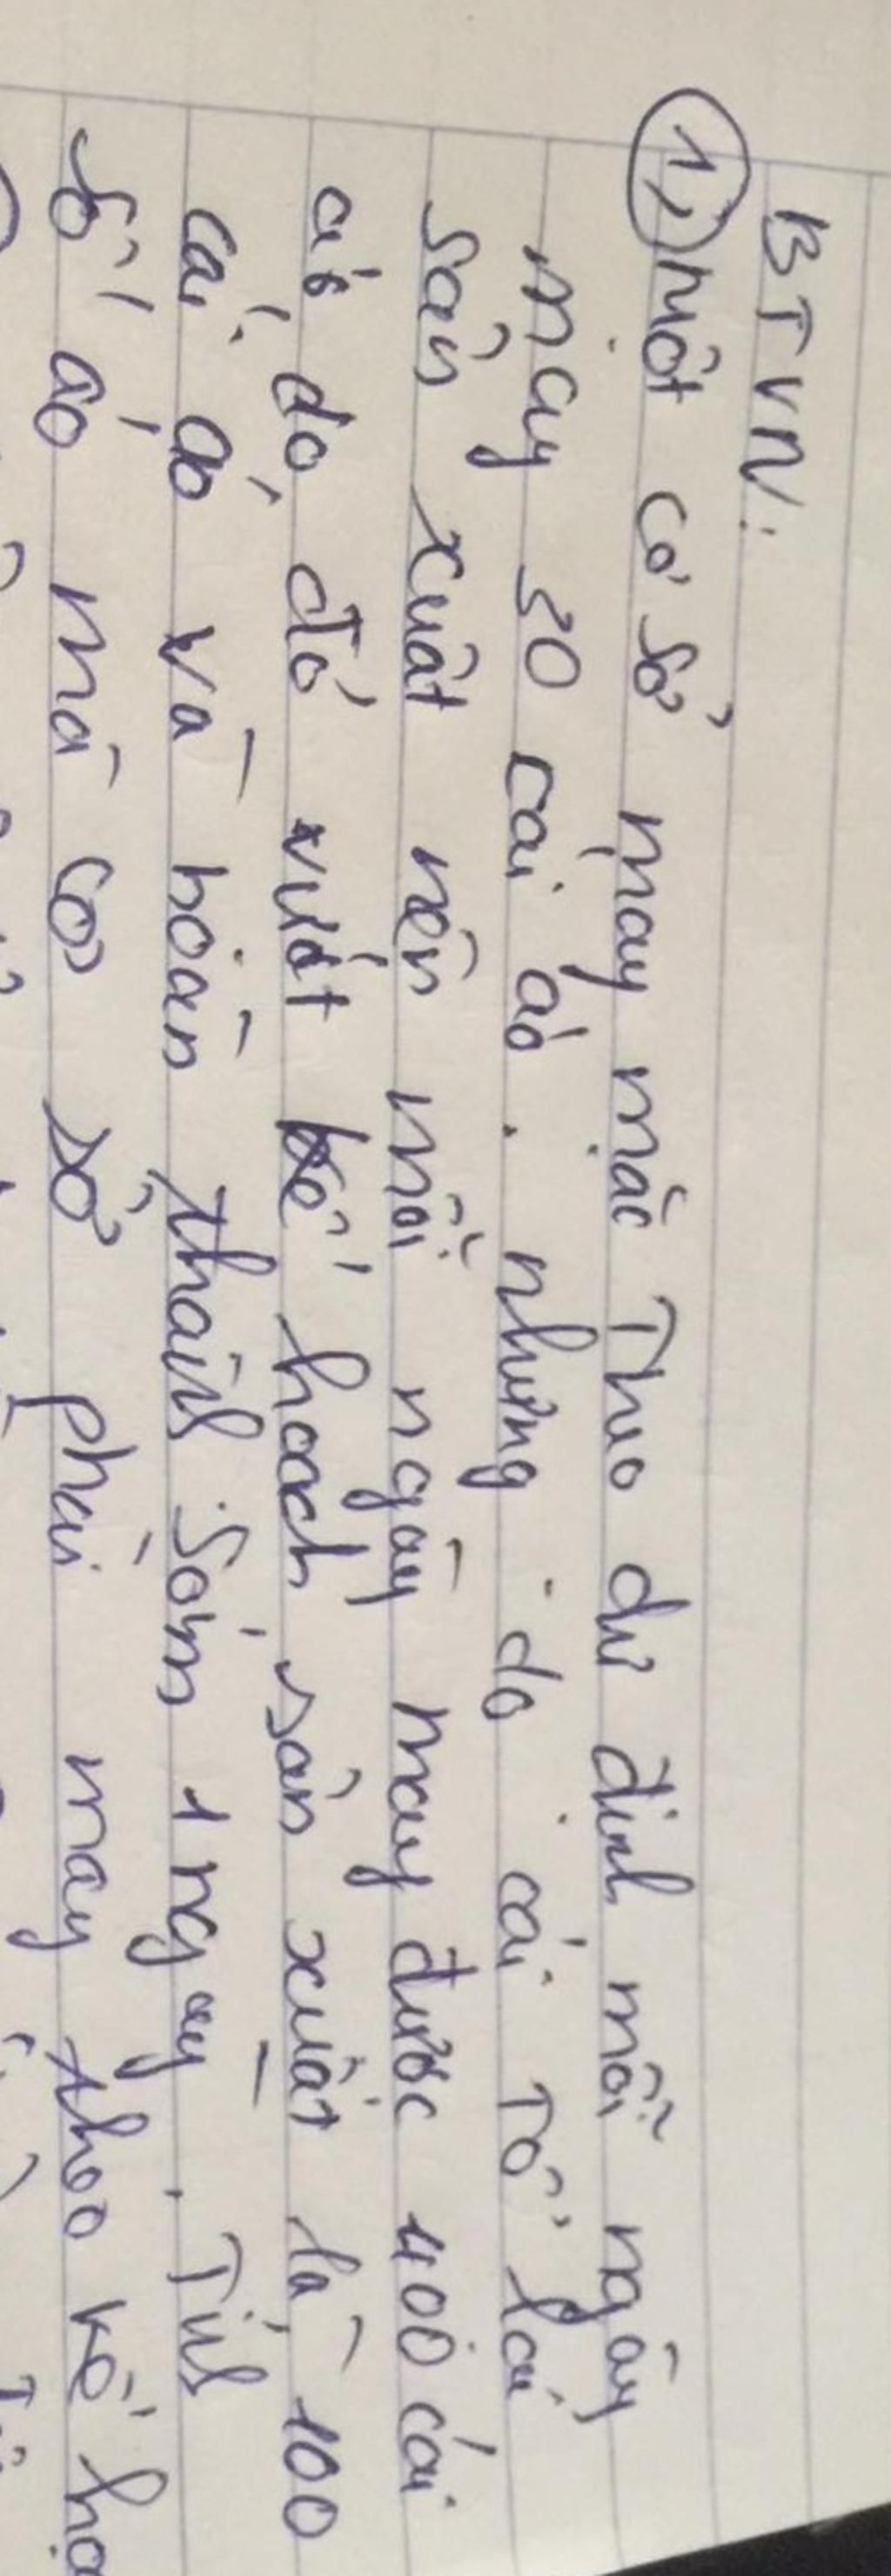 BTVN:
1, Một cơ sở may mặc Theo dự định mỗi ngày
may 30 cái áo. nhưng do cải Tổ lại
sản xuất nên mỗi ngày may được 400 cái
áo do, đó vượt kế hoạch sản xuất là 100
cái áo và hoàn thành Sớm 1 ngày. Tính
số áo mà cơ sở phải may theo kế ho